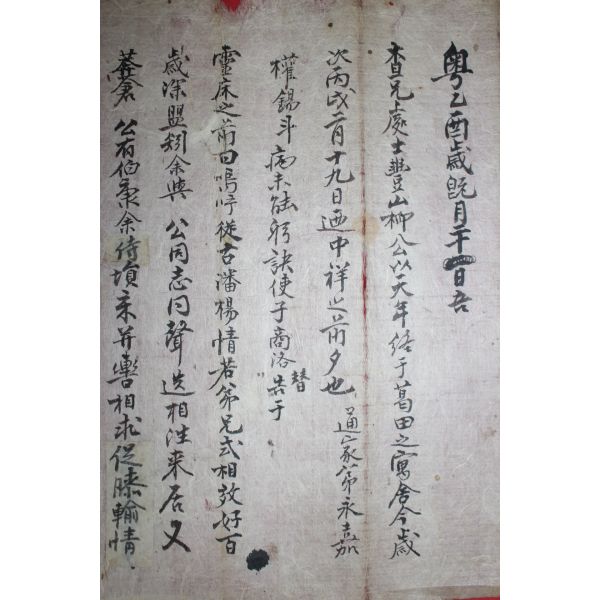 粤乙酉歲既月二十一日吾
査兄處士豊山柳公以天年終于葛田之寓舍今歲
次丙戌二月十九日迺中祥之前夕也 通家弟永嘉
權錫斗病未能躬訣使子商洛替告于
靈床之前曰嗚呼從古潘楊情若弟兄式相效好百
歲深盟矧余與 公同志同聲迭相往来居又
莽蒼 公有伯氣余待塤来并轡相求促膝輸情